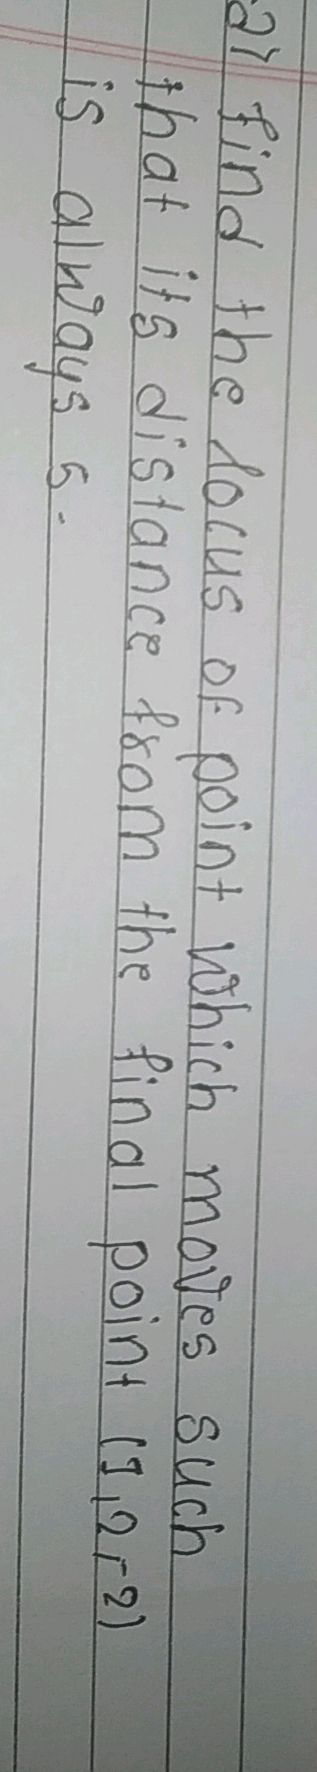 2) find the locus of point which moves such
that its distance from the final point (1,2,-2)
is always 5.